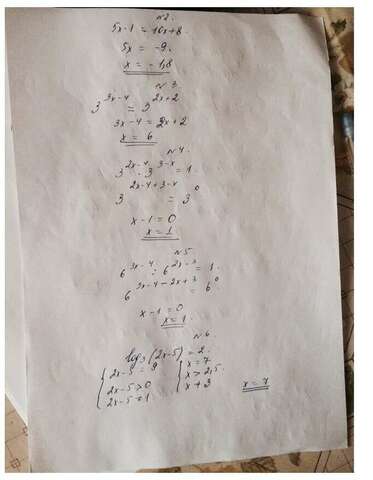 n2.
5x-1 = 10x+8
5x = -9.
x = -1,8
n 3.
3^{3x-4} = 3^{2x+2}
3x-4 = 2x+2
x = 6
n 4.
3^{2x-4} · 3^{3-x} = 1.
3^{2x-4+3-x} = 3^0
x-1 = 0
x = 1
n 5
6^{3x-4} : 6^{2x-3} = 1.
6^{3x-4-2x+3} = 6^0
x-1 = 0
x = 1.
n 6.
log_3 (2x-5) = 2.
2x-5 = 9 x = 7
2x-5>0 x > 2,5 x = 7
2x-5≠1 x ≠ 3